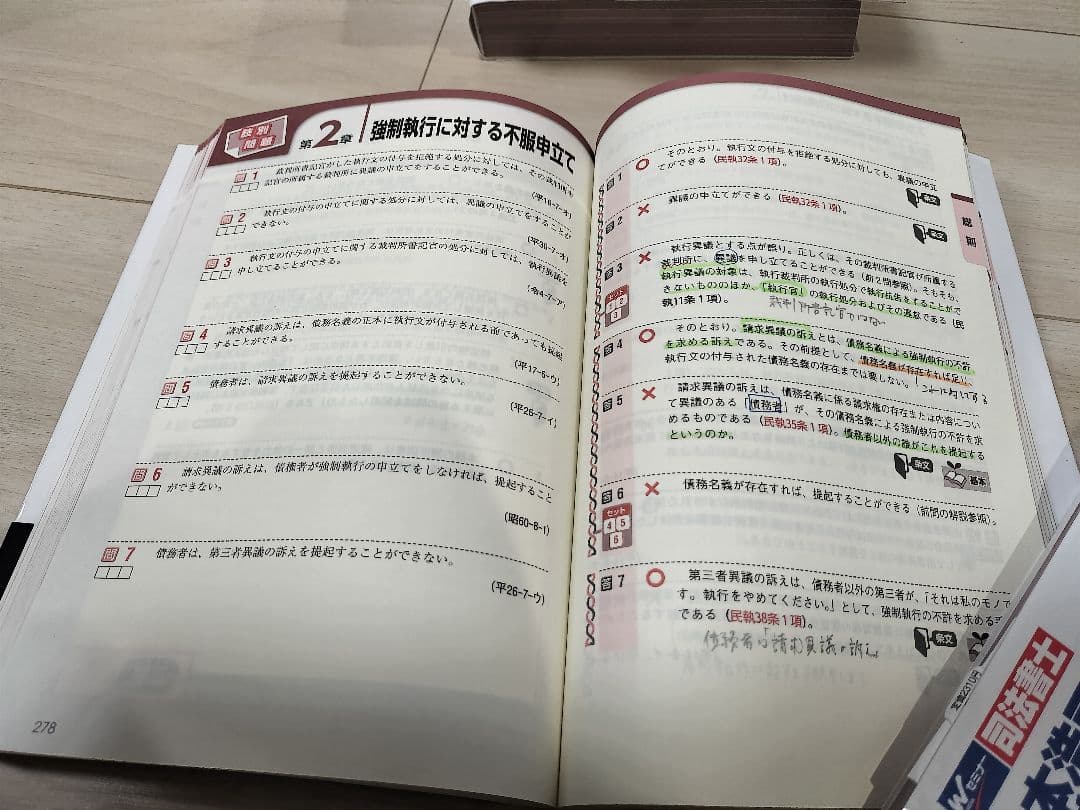 肢別
問題
第2章 強制執行に対する不服申立て
問1 裁判所書記官がした執行文の付与を拒絶する処分に対しては、その裁判所書
記官の所属する裁判所に異議の申立てをすることができる。
(平18-7-オ)
問2 執行文の付与の申立てに関する処分に対しては、異議の申立てをすることが
できない。
(平30-7-オ)
問3 執行文の付与の申立てに関する裁判所書記官の処分に対しては、執行異議を
申し立てることができる。
(令4-7-ア)
問4 請求異議の訴えは、債務名義の正本に執行文が付与される前であっても提起
することができる。
(平17-6-ウ)
問5 債務者は、請求異議の訴えを提起することができない。
(平26-7-イ)
問6 請求異議の訴えは、債権者が強制執行の申立てをしなければ、提起すること
ができない。
(昭60-8-1)
問7 債務者は、第三者異議の訴えを提起することができない。
(平26-7-ウ)
278
答1 ○ そのとおり。執行文の付与を拒絶する処分に対しても、異議の申立
てができる(民執32条1項)。
条文
答2 × 異議の申立てができる(民執32条1項)。
条文
答3 × 執行異議とする点が誤り。正しくは、その裁判所書記官が所属する
裁判所に、異議を申し立てることができる(前2問参照)。そもそも、
執行異議の対象は、執行裁判所の執行処分で執行抗告をすることがで
きないもののほか、「執行官」の執行処分およびその遅怠である(民
執11条1項)。
裁判所書記官ではない
セット
1 2
3
答4 ○ そのとおり。請求異議の訴えとは、債務名義による強制執行の不許
を求める訴えである。その前提として、債務名義が存在すれば足り、
執行文の付与された債務名義の存在までは要しない。
答5 × 請求異議の訴えは、債務名義に係る請求権の存在または内容につい
て異議のある「債務者」が、その債務名義による強制執行の不許を求
めるものである(民執35条1項)。債務者以外の誰がこれを提起する
というのか。
条文
基本
答6 × 債務名義が存在すれば、提起することができる(前問の解説参照)。
セット
4 5
6
答7 ○ 第三者異議の訴えは、債務者以外の第三者が、「それは私のモノで
す。執行をやめてください。」として、強制執行の不許を求める
である(民執38条1項)。
条文
債務者は「請求異議の訴え
総則
定価2310円
司法書士
Wセミナー